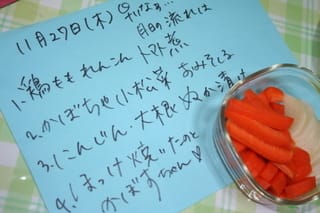 11月27日(木)
月日の流れは
1. 鶏もも れんこん トマト煮
2. かぼちゃ 小松菜 おみそしる
3. にんじん・大根 ぬか漬け
4. ほっけ 焼いたのと
かぼすちゃん♡